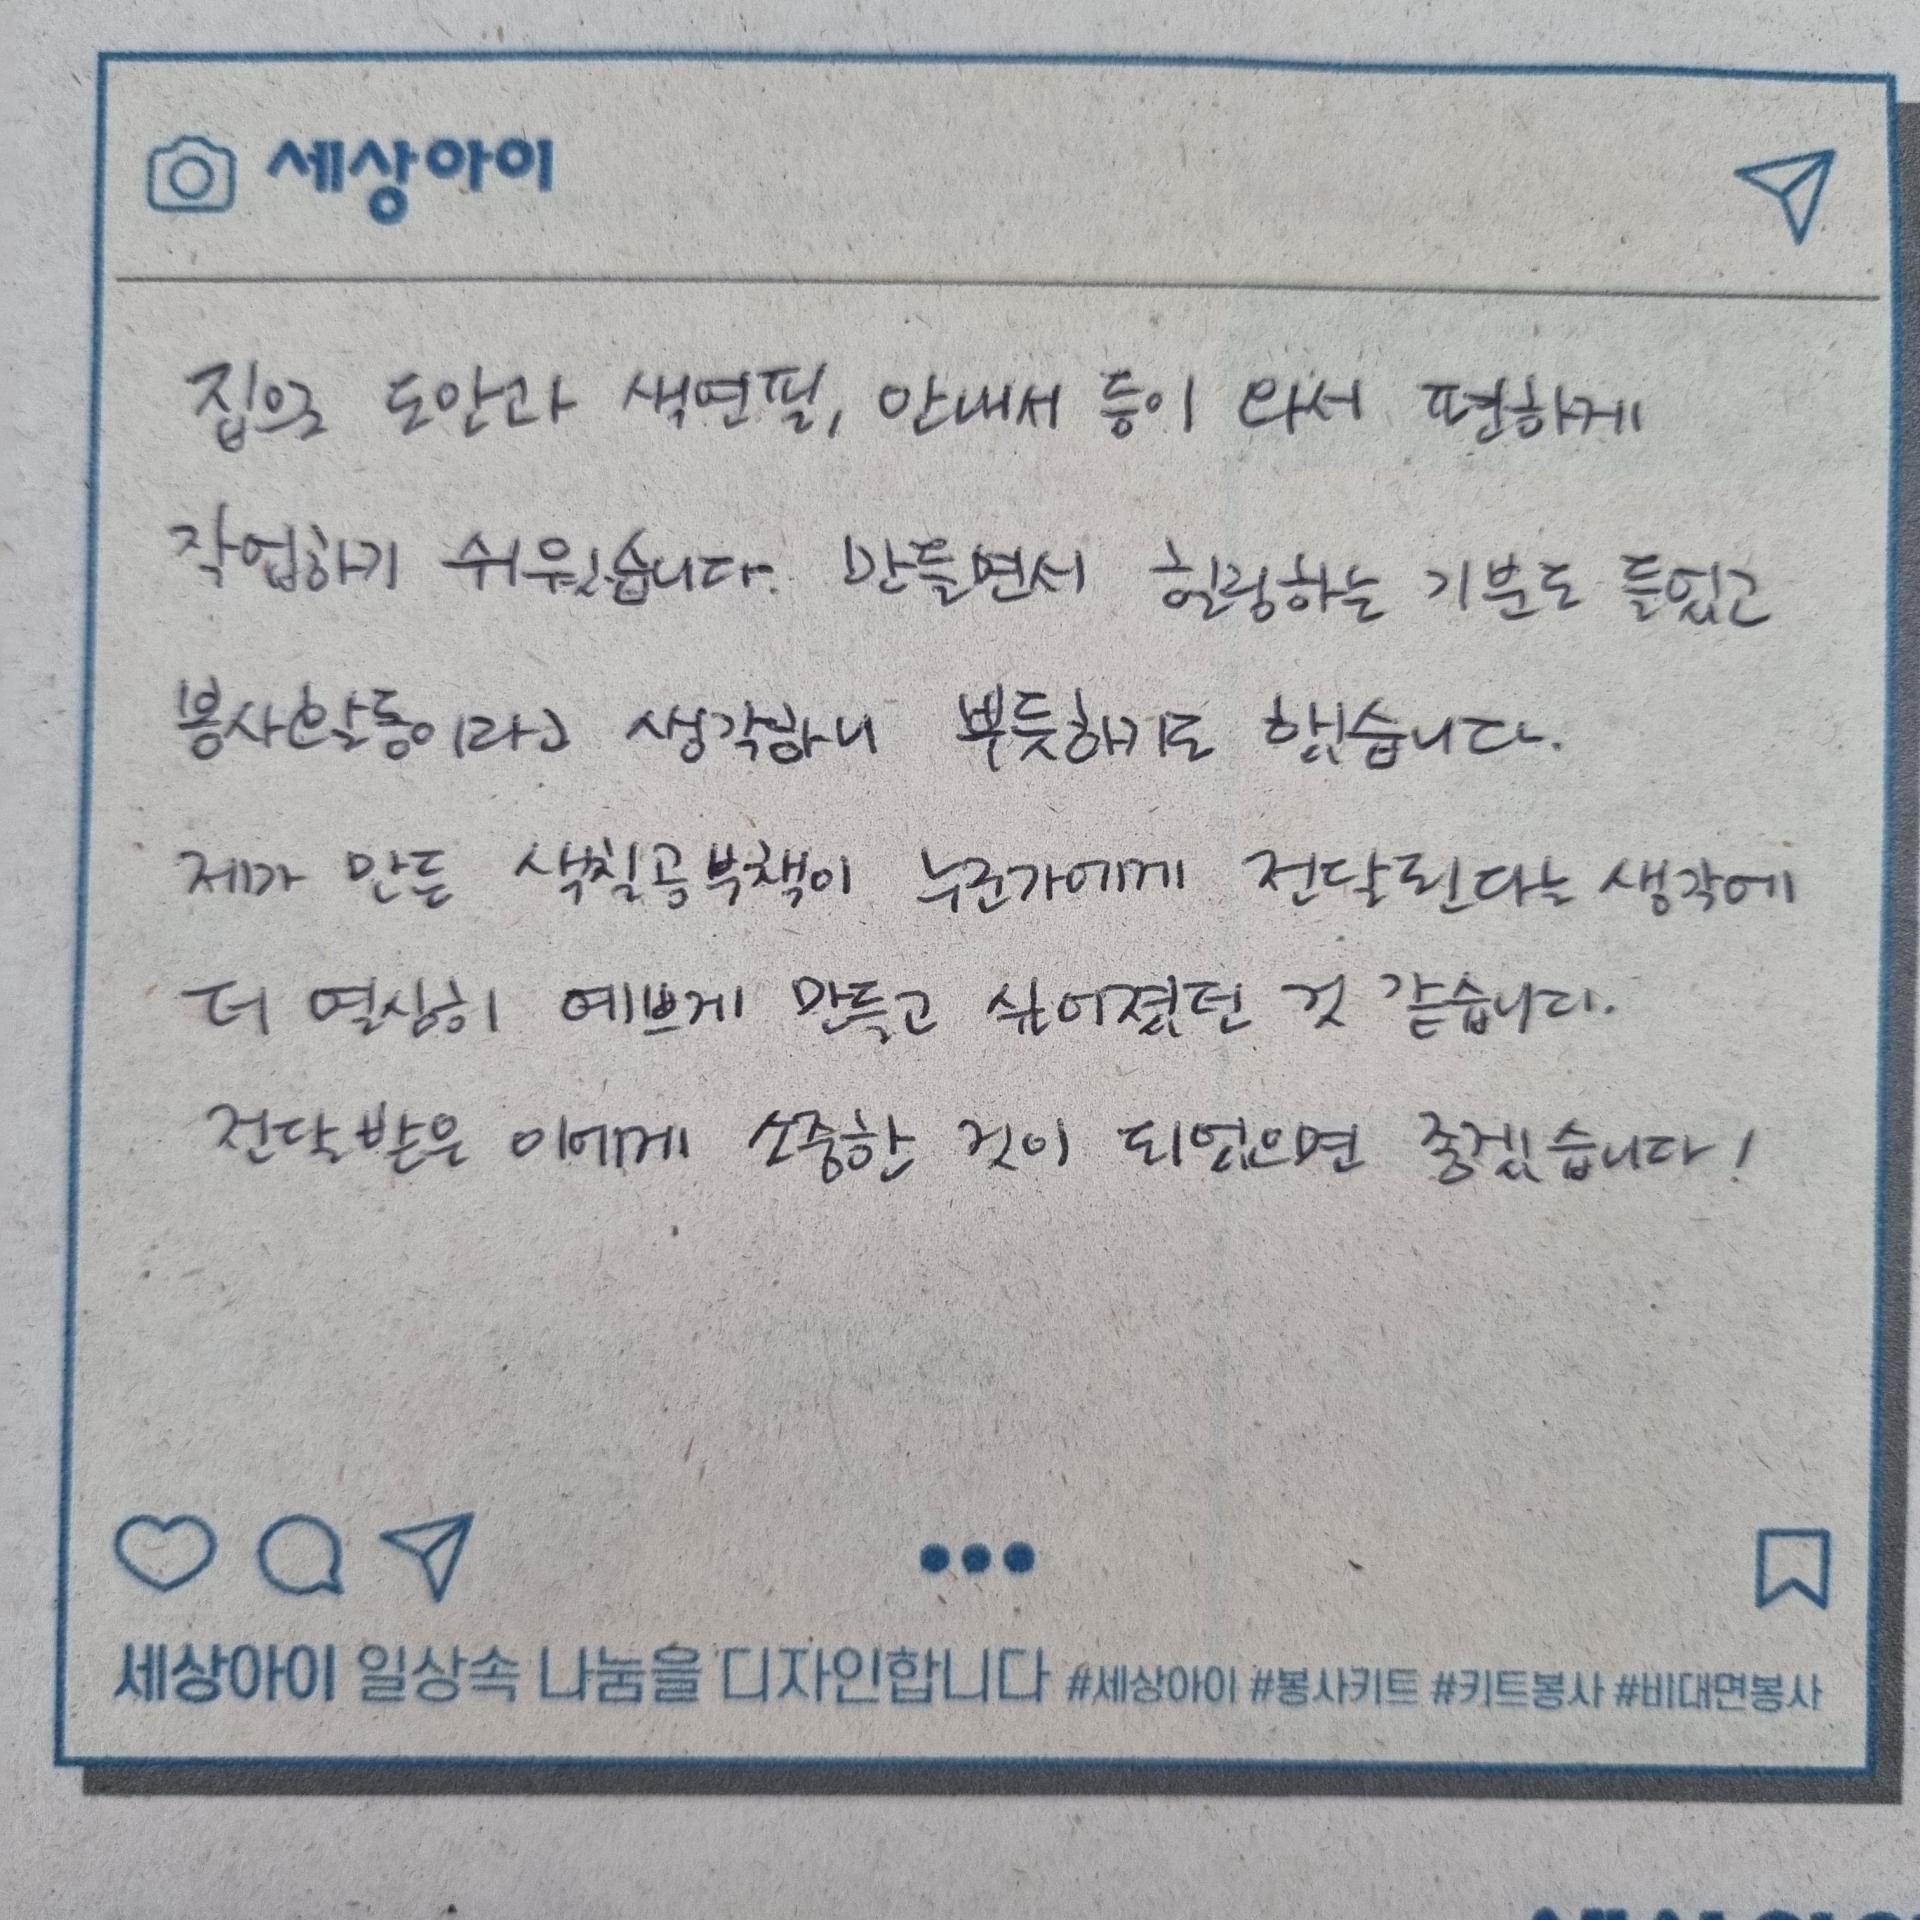 세상아이
집으로 도안과 색연필, 안내서 등이 와서 편하게
작업하기 쉬웠습니다. 만들면서 힐링하는 기분도 들었고
봉사활동이라고 생각하니 뿌듯하기도 했습니다.
제가 만든 색칠공부책이 누군가에게 전달된다는 생각에
더 열심히 예쁘게 만들고 싶어졌던 것 같습니다.
전달받은 이에게 소중한 것이 되었으면 좋겠습니다!
세상아이 일상속 나눔을 디자인합니다 #세상아이 #봉사키트 #키트봉사 #비대면봉사